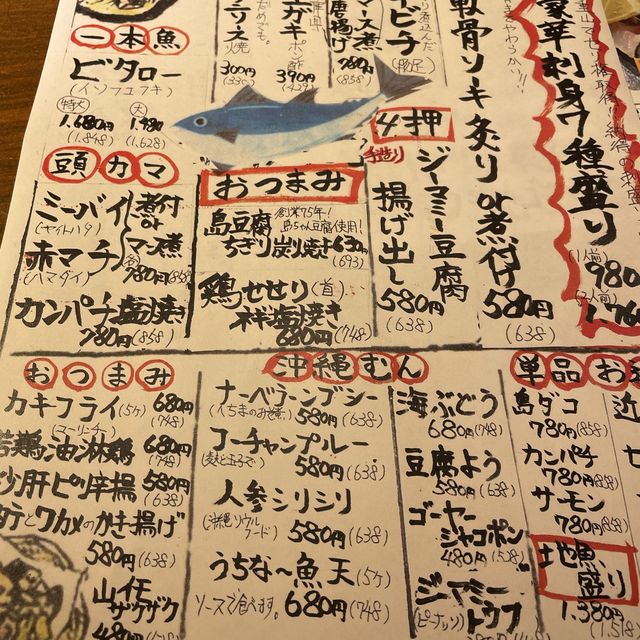 一本魚
ビタロー
(イソフエフキ)
特大
1.680円
(1.848)
大
1.480
(1.628)
300円
(330)
ポン酢
390円
(429)
マース煮
780円
(858)
軟骨ソーキ炙りor煮付け
580円
(638)
豪華刺身7種盛り
(1人前)
980
(2人前)
1.760
4押
手造り
ジーマミー豆腐
揚げ出し
580円
(638)
頭カマ
ミーバイ
(ヤイトハタ)
赤マチ
(ハマダイ)
煮付
or
マース煮
各
780円(858)
カンパチ塩焼き
780円(858)
おつまみ
創業75年!
島ちゃん豆腐使用!
島豆腐
ちぎり炭火焼き630
(693)
鶏せせり(首)
ネギ塩焼き
680円(748)
おつまみ
カキフライ(5ケ)680円
(748)
(ユーリンチー)
若鶏油淋鶏680円
(748)
砂肝ピリ辛揚580円
(638)
ワカメのかき揚げ
580円(638)
山イモ
ザクザク
480円
沖縄むん
ナーベラーンブシー
(へちまのみそ煮)580円(638)
フーチャンプルー
(麩と玉子で)580円(638)
人参シリシリ
(沖縄ソウルフード)580円(638)
うちな〜魚天(5ケ)
ソースで食べます。680円(748)
海ぶどう
680円(748)
豆腐よう
580円(638)
ゴーヤー
ジャコポン
480円(528)
ジーマミー
(ピーナッツ)トウフ
単品お
島ダコ
780円(858)
カンパチ
780円(858)
サーモン
780円(858)
地魚盛り
1.380円